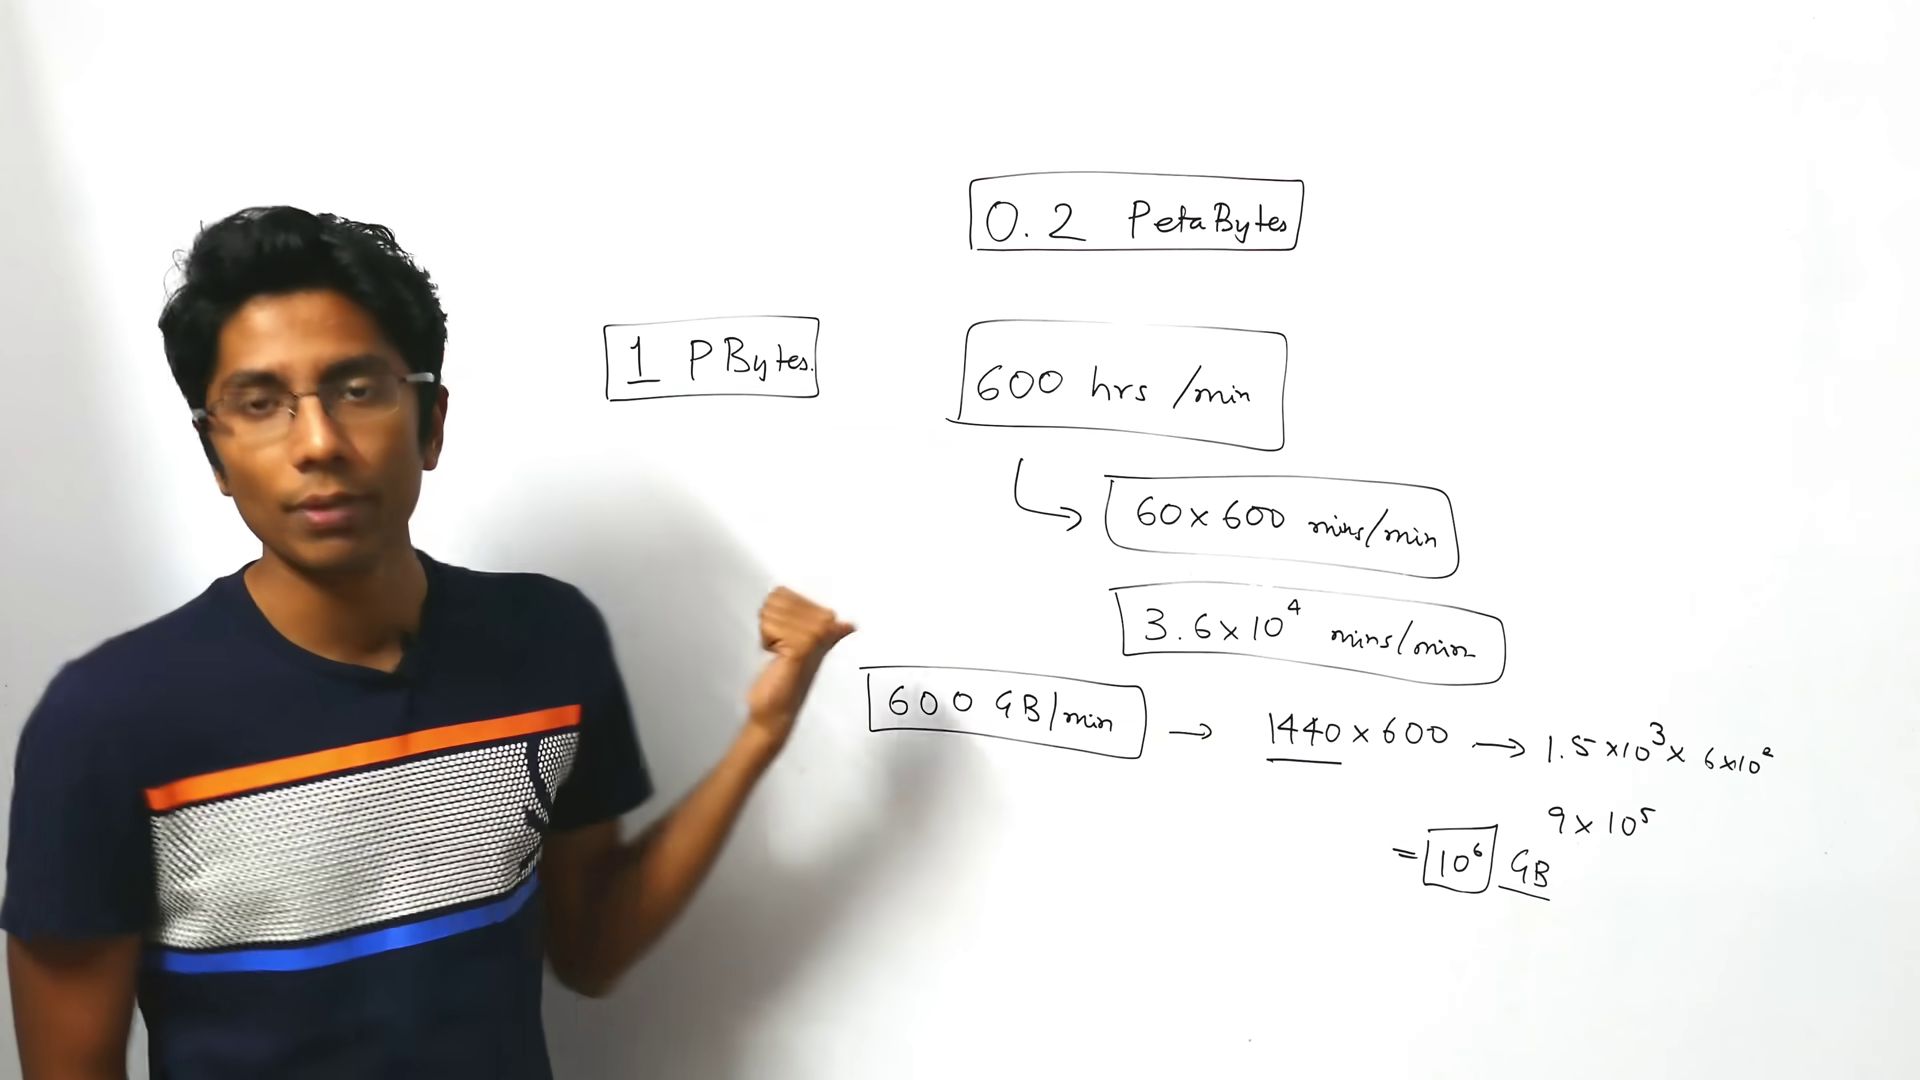 0.2 PetaBytes
1 PBytes.
600 hrs /min
60 x 600 mins/min
3.6 x 10⁴ mins/min
600 GB/min → 1440 x 600 → 1.5 x 10³ x 6 x 10²
9 x 10⁵
= 10⁶ GB